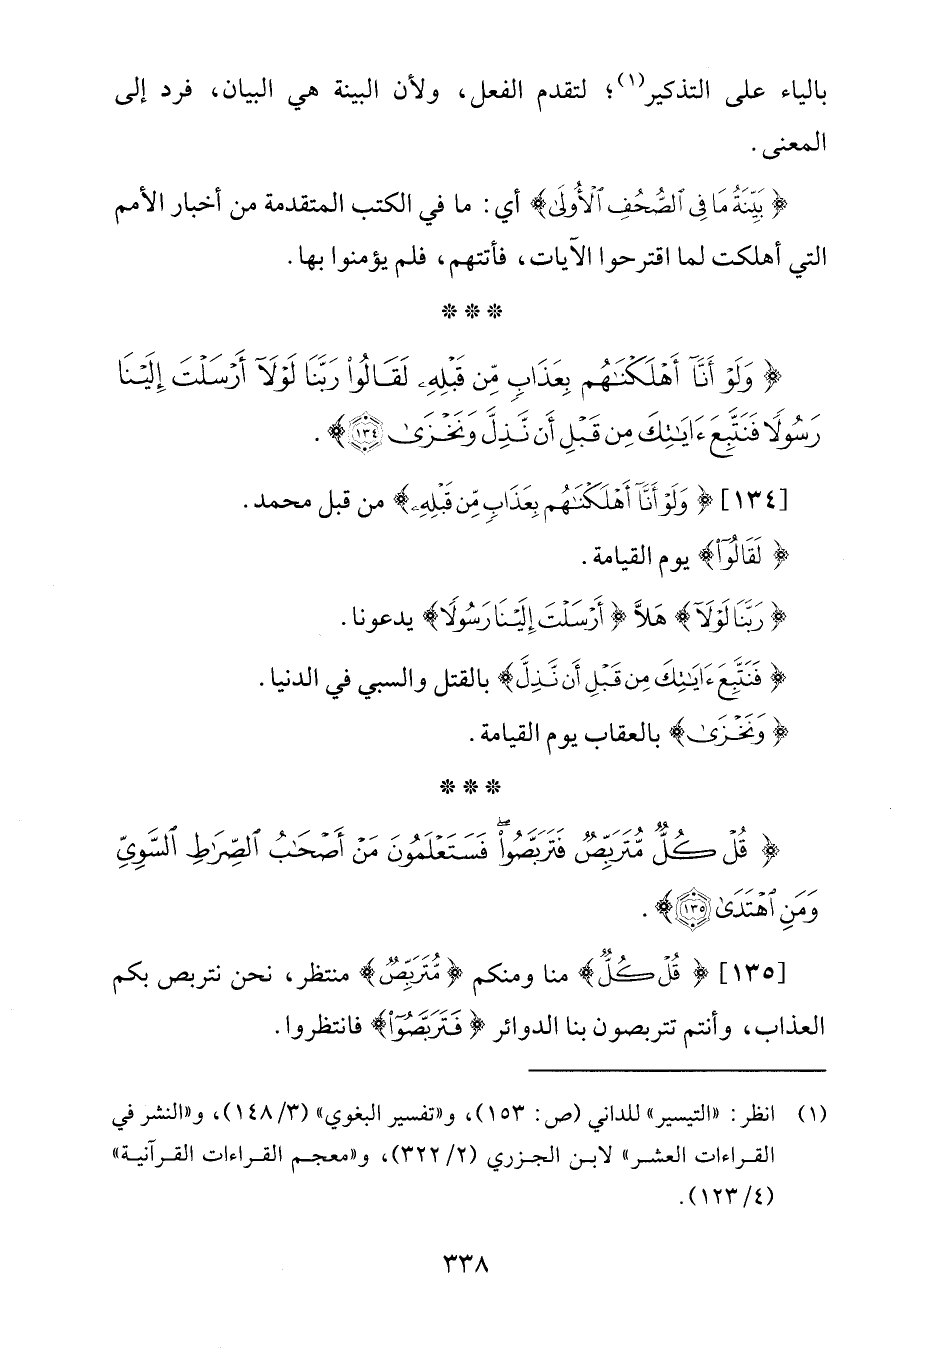 بالياء على التذكير(١)؛ لتقدم الفعل، ولأن البينة هي البيان، فرد إلى
المعنى.
﴿بَيِّنَةُ مَا فِي ٱلصُّحُفِ ٱلْأُولَىٰ﴾ أي: ما في الكتب المتقدمة من أخبار الأمم
التي أهلكت لما اقترحوا الآيات، فأتتهم، فلم يؤمنوا بها.
* * *
﴿وَلَوْ أَنَّآ أَهْلَكْنَٰهُم بِعَذَابٍ مِّن قَبْلِهِۦ لَقَالُوا۟ رَبَّنَا لَوْلَآ أَرْسَلْتَ إِلَيْنَا
رَسُولًا فَنَتَّبِعَ ءَايَٰتِكَ مِن قَبْلِ أَن نَّذِلَّ وَنَخْزَىٰ ١٣٤﴾.
[١٣٤] ﴿وَلَوْ أَنَّآ أَهْلَكْنَٰهُم بِعَذَابٍ مِّن قَبْلِهِۦ﴾ من قبل محمد.
﴿لَقَالُوٓا۟﴾ يوم القيامة.
﴿رَبَّنَا لَوْلَآ﴾ هَلاَّ ﴿أَرْسَلْتَ إِلَيْنَا رَسُولًا﴾ يدعونا.
﴿فَنَتَّبِعَ ءَايَٰتِكَ مِن قَبْلِ أَن نَّذِلَّ﴾ بالقتل والسبي في الدنيا.
﴿وَنَخْزَىٰ﴾ بالعقاب يوم القيامة.
* * *
﴿قُلْ كُلٌّ مُّتَرَبِّصٌ فَتَرَبَّصُوا۟ ۖ فَسَتَعْلَمُونَ مَنْ أَصْحَٰبُ ٱلصِّرَٰطِ ٱلسَّوِيِّ
وَمَنِ ٱهْتَدَىٰ ١٣٥﴾.
[١٣٥] ﴿قُلْ كُلٌّ﴾ منا ومنكم ﴿مُّتَرَبِّصٌ﴾ منتظر، نحن نتربص بكم
العذاب، وأنتم تتربصون بنا الدوائر ﴿فَتَرَبَّصُوٓا۟﴾ فانتظروا.
(١) انظر: «التيسير» للداني (ص: ١٥٣)، و«تفسير البغوي» (٣/ ١٤٨)، و«النشر في
القراءات العشر» لابن الجزري (٢/ ٣٢٢)، و«معجم القراءات القرآنية»
(٤/ ١٢٣).
٣٣٨